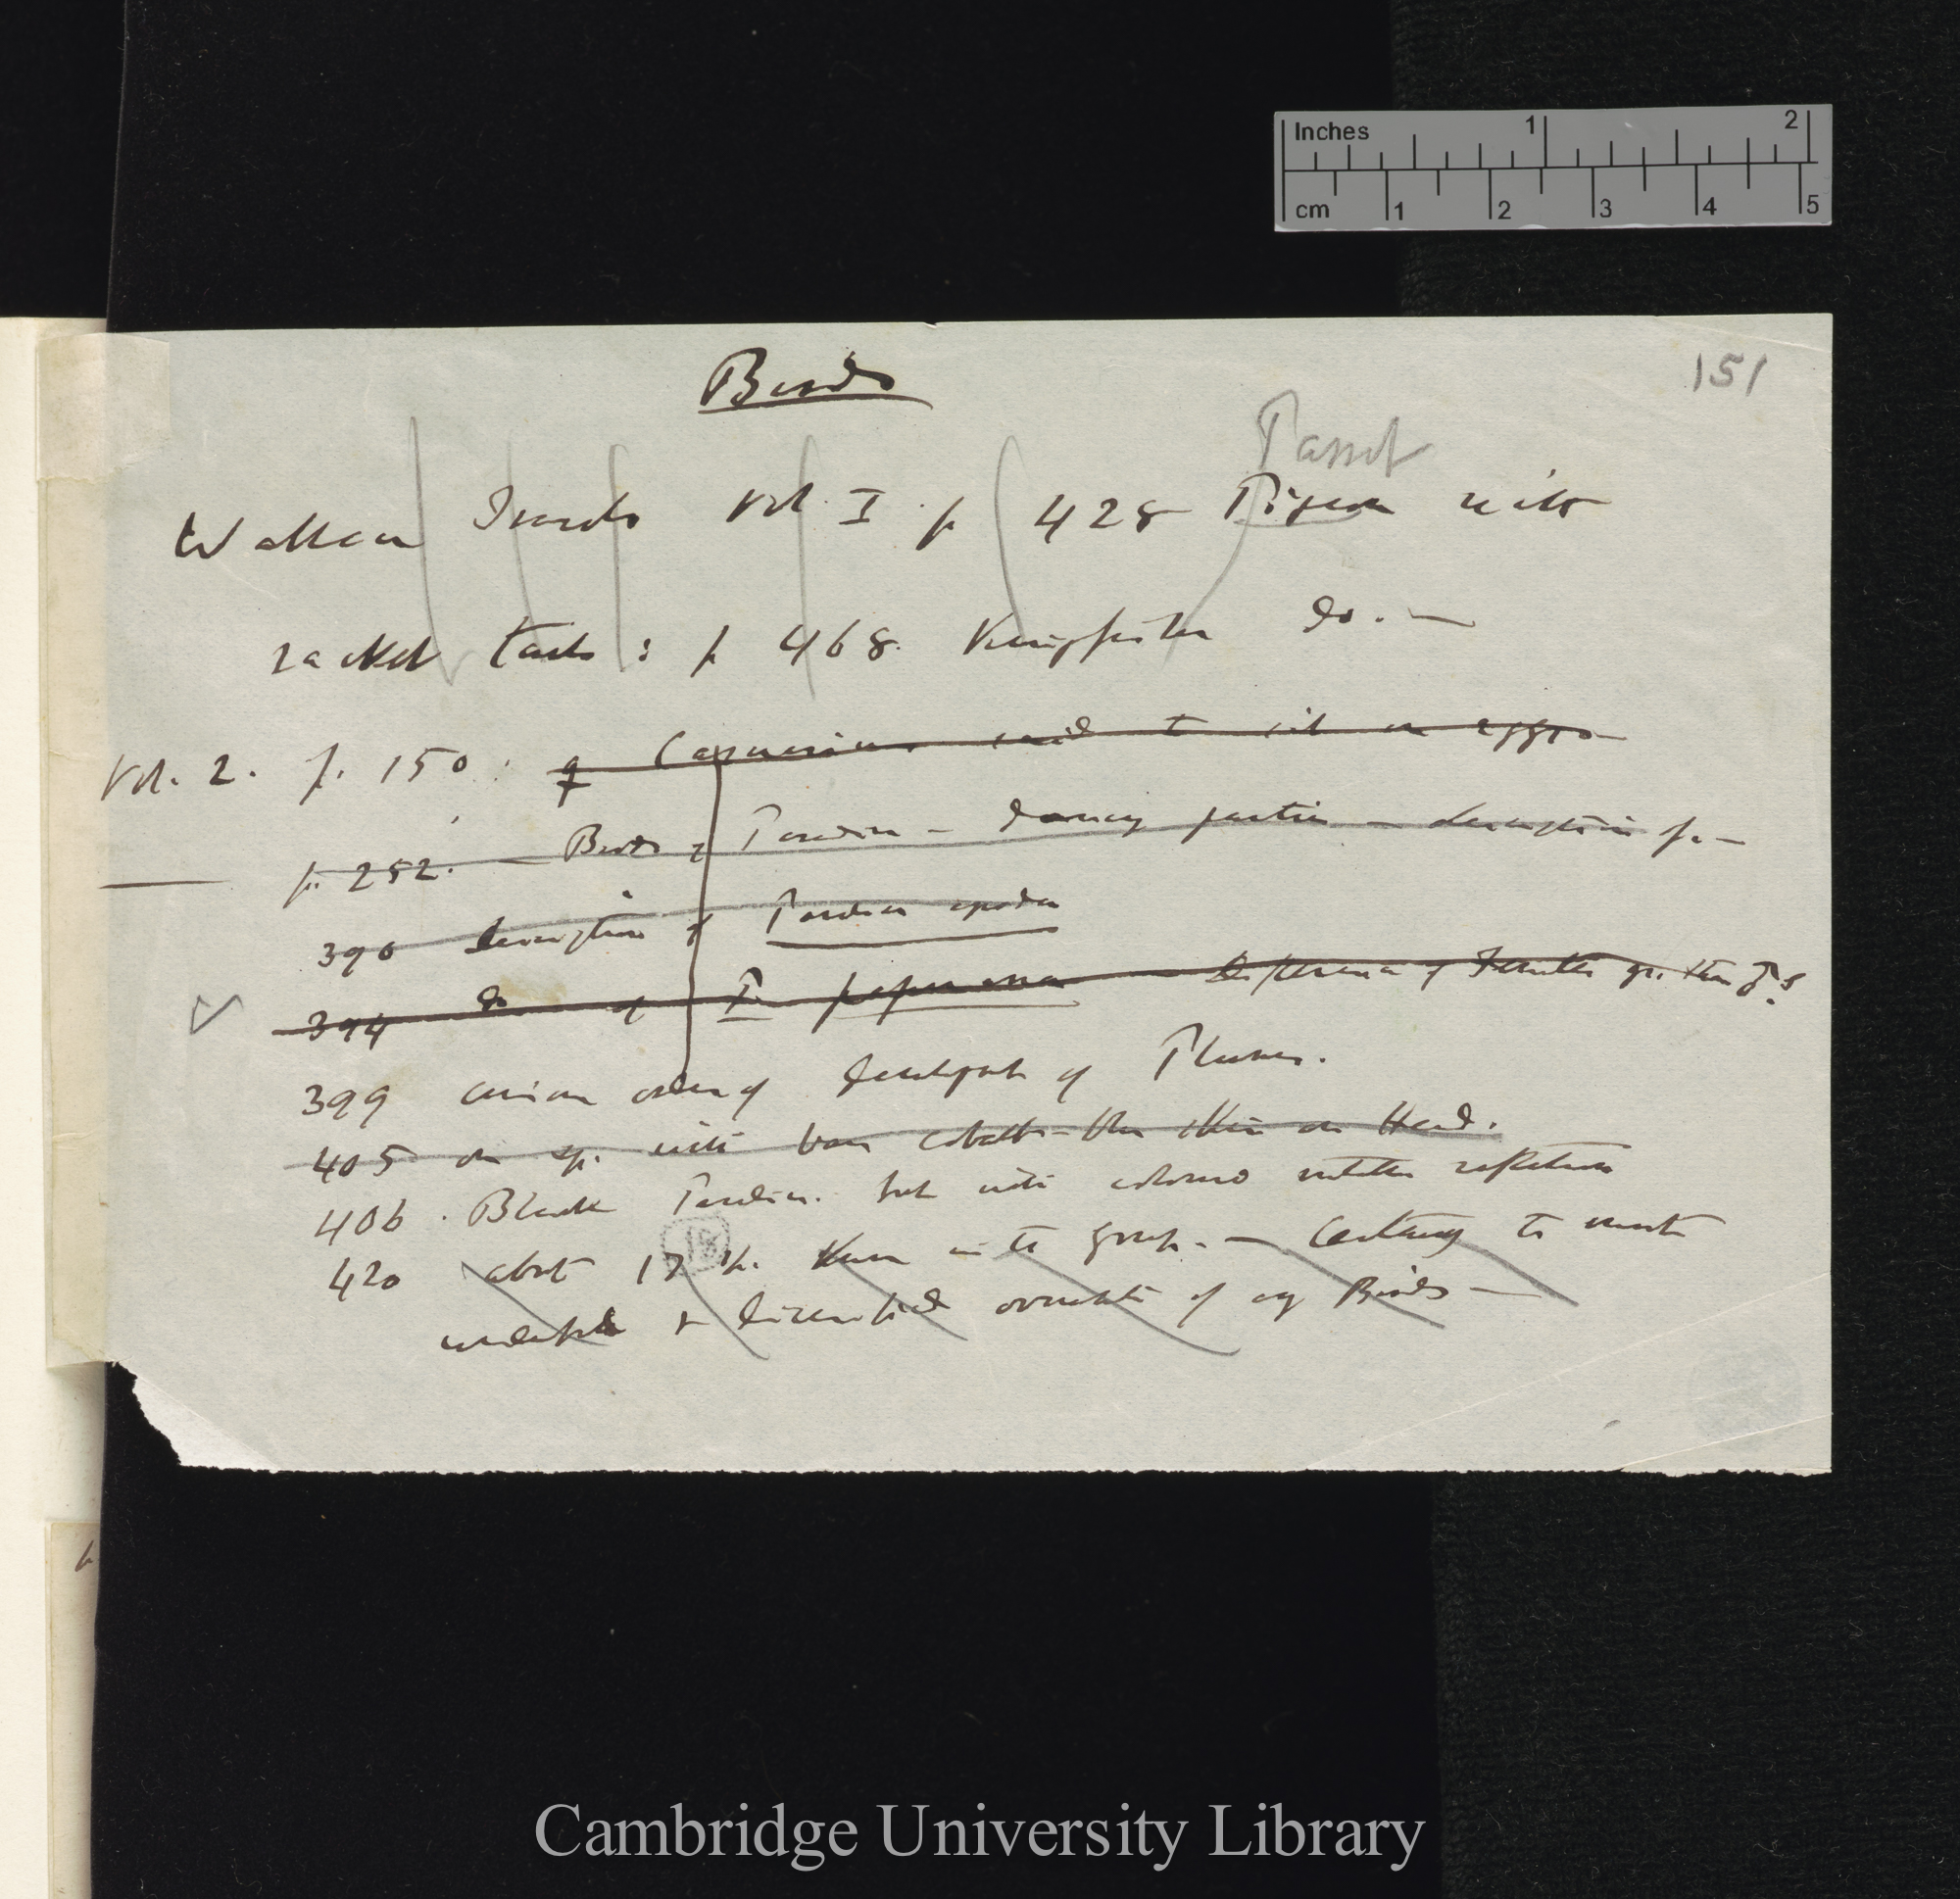 Inches 1 2
cm 1 2 3 4 5
151
Birds
Parrot
Wallace Travels vol. I. p 428 Pigeon with
racket tails : p 468. Kingfisher do. —
Vol. 2. p. 150 : Casuarius said to sit on eggs
p. 252. — Birds of Paradise — dancing parties — description p. —
390 description of Paradisea apoda
394 do of P. papuana — Difference of Females gr. than ♂s
399 curious order of development of Plumes.
405 on sp. with bare cobalt-blue skin on Head.
406. Black Paradisea. but with coloured metallic reflections
420 about 17 18 sp. known in the group. — Certainly the most
wonderful & diversified ornaments of any Birds —
Cambridge University Library